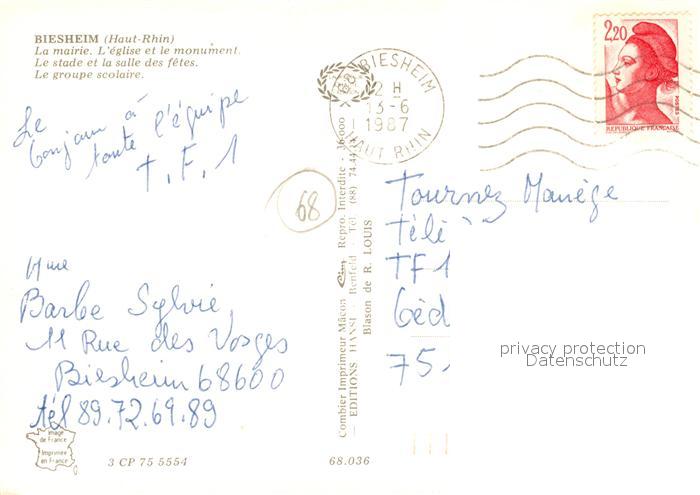 BIESHEIM (Haut-Rhin)
La mairie. L'église et le monument.
Le stade et la salle des fêtes.
Le groupe scolaire.
Le
bonjour à
toute l'équipe
T.F.1
68
Mme
Barbe Sylvie,
11 Rue des Vosges
Biesheim 68600
tél 89.72.69.89
Image
de France
Imprimée
en France
3 CP 75 5554
68.036
Combier Imprimeur Mâcon Cim Repro. Interdite - 36.000
EDITIONS HANSI - Benfeld - Tél. (88) 74.44
Blason de R. LOUIS
BIESHEIM
12 H
13-6
1987
HAUT RHIN
2,20
POSTES
REPUBLIQUE FRANÇAISE
Tournez Manège
Télé
TF1
Céd
75.
privacy protection
Datenschutz